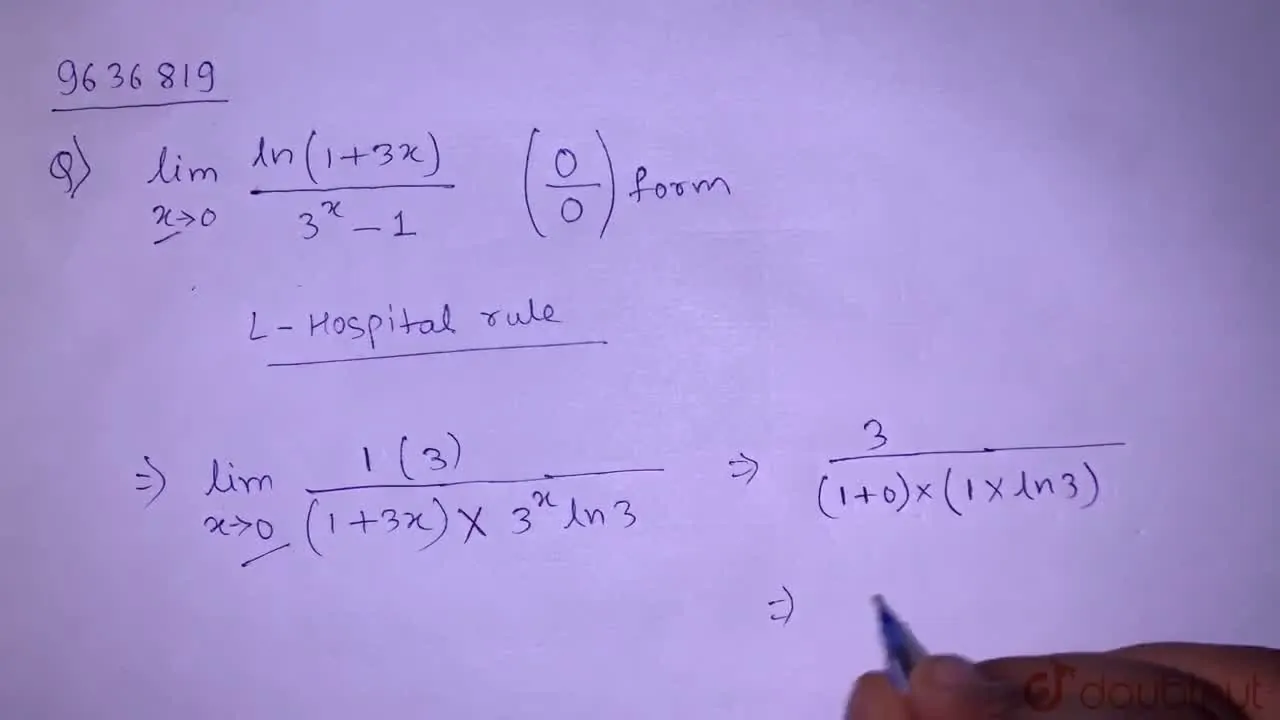 9636819
Q) lim x→0 ln(1+3x) / 3^x - 1 (0/0) form
L-Hospital rule
=) lim x→0 1(3) / (1+3x) × 3^x ln3 =) 3 / (1+0)×(1×ln3)
=)
doubtnut